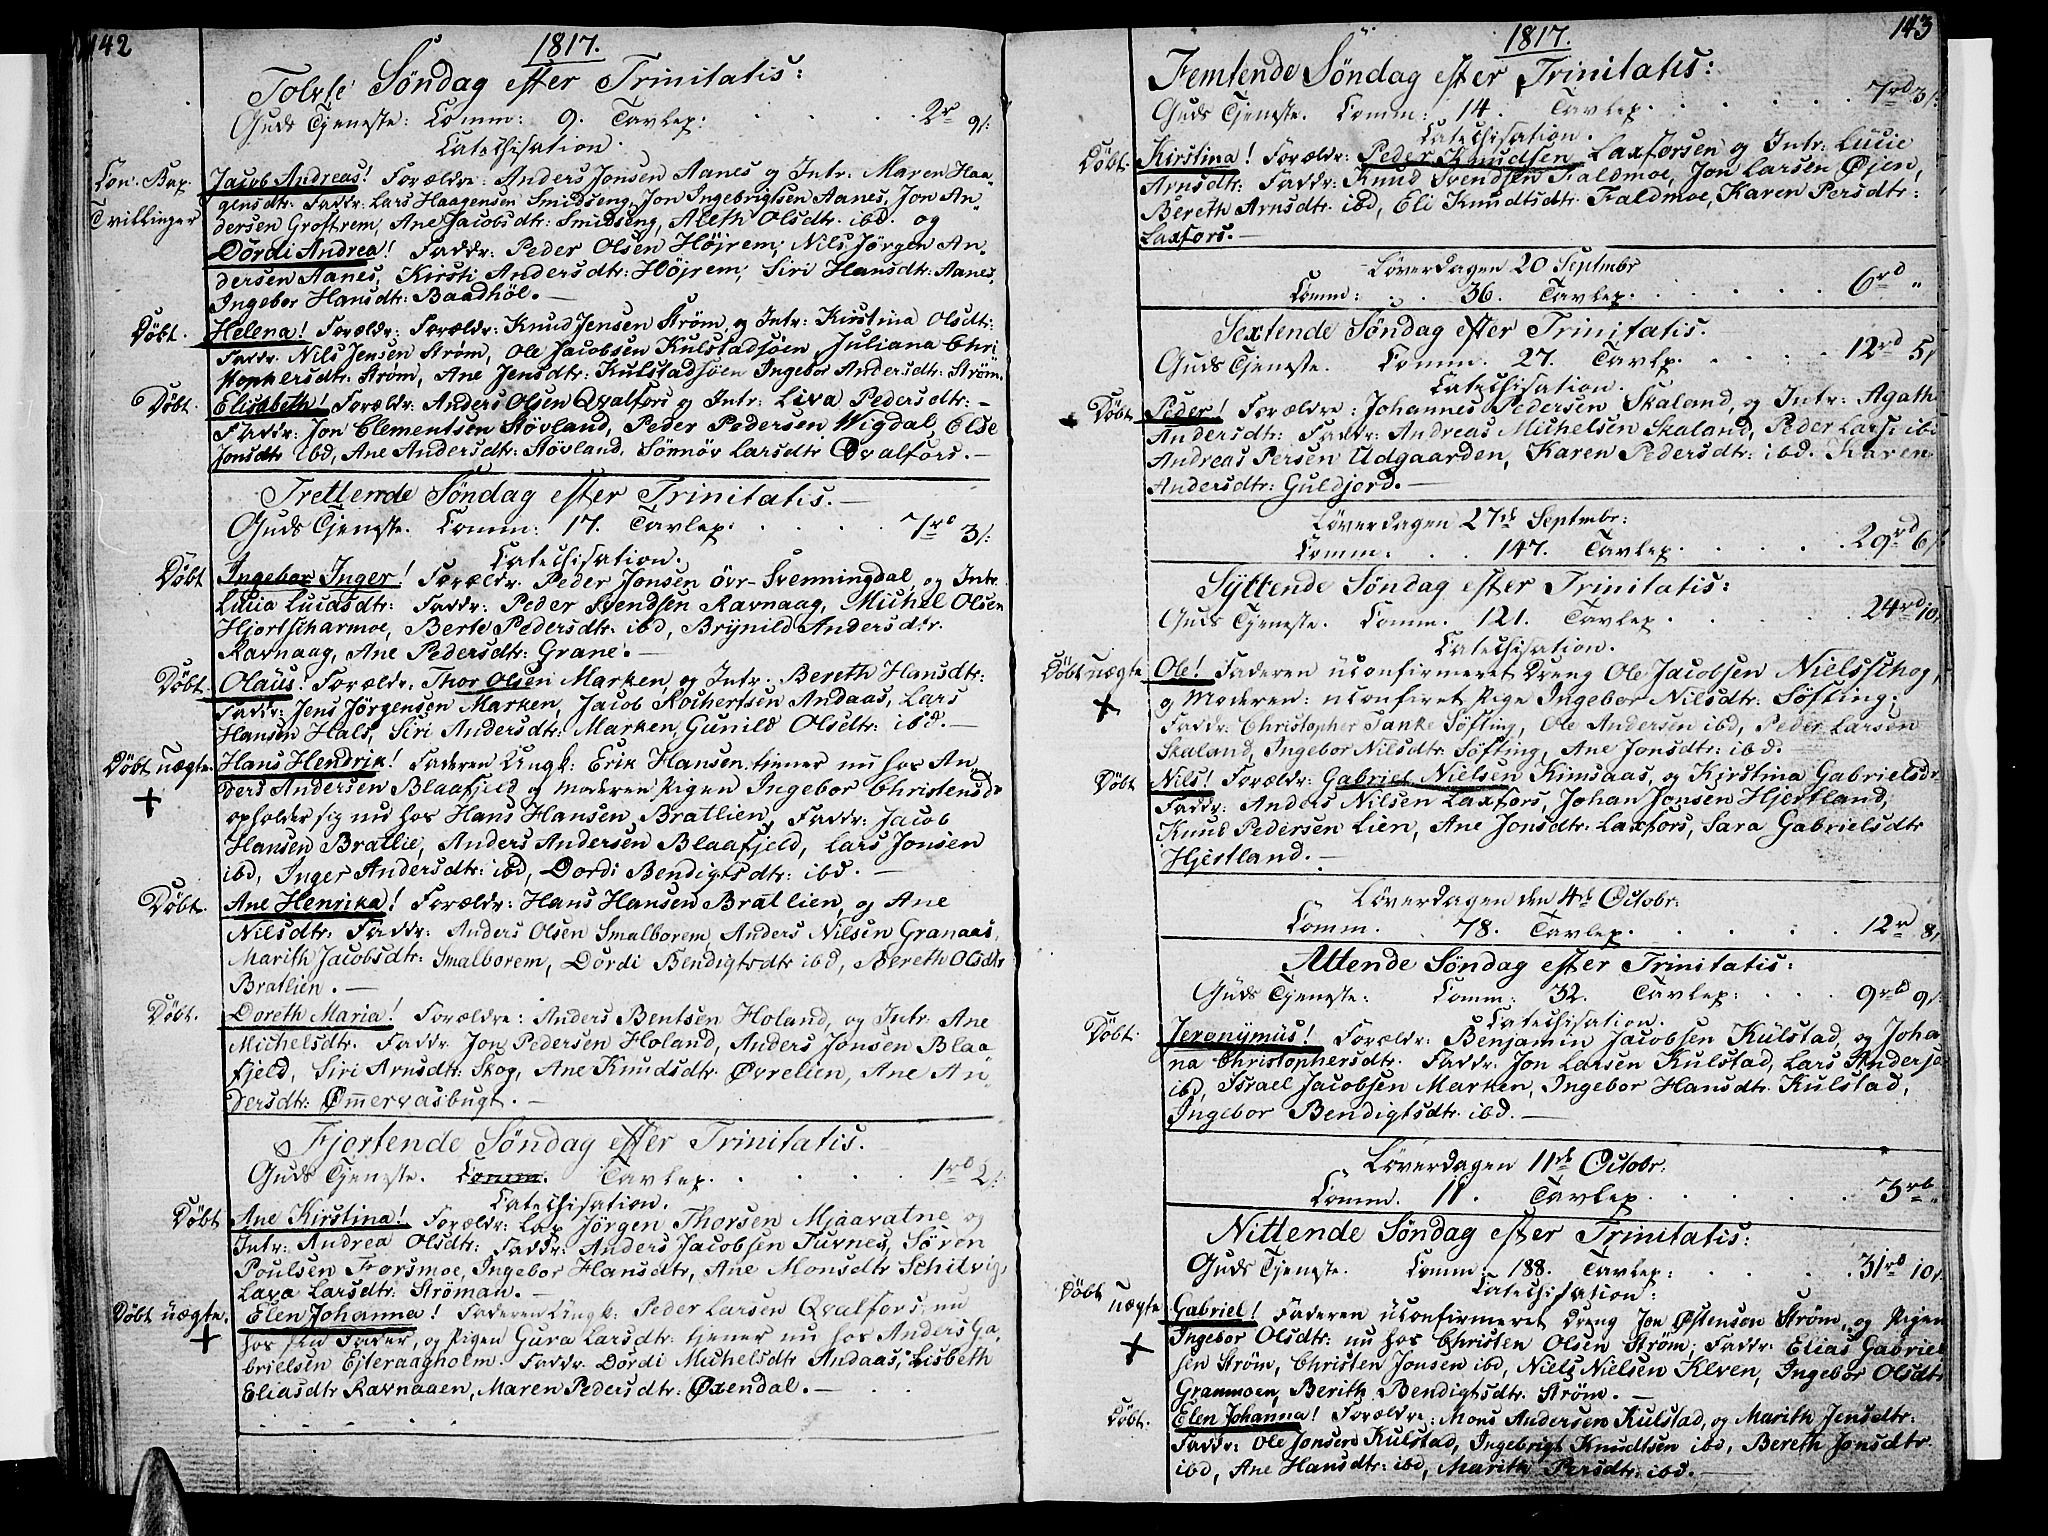 142
1817.
Tolvte Søndag efter Trinitatis:
Guds Tjeneste: Comm: 9. Tavlep: 2rd 9/:
Catechisation.
Con. Bap. Jacob Andreas! Forældre: Anders Jonsen Aanes og Intr: Maren Haa-
Tvillinger gensdtr: Faddr: Lars Haagensen Smidseng, Jon Ingebrigtsen Aanes, Jon An-
dersen Groftrem, Ane Jacobsdtr: Smidseng, Aleth Olsdtr: ibd. og
Dordi Andrea! Faddr: Peder Olsen Højrem; Nils Jørgen An-
dersen Aanes, Kirsti Andersdtr: Højrem; Siri Hansdtr: Aanes,
Ingebor Hansdtr: Baadhøl.—
Døbt. Helena! Forældr: Forældr: Knud Jensen Strøm, og Intr: Kirstina Olsdtr:
Faddr: Nils Jensen Strøm, Ole Jacobsen Kulstadsöen, Juliana Chri
stophersdtr: Strøm, Ane Jensdtr: Kulstadsöen Ingebor Andersdtr: Strøm.
6 Døbt. Elisabeth! Forældr: Anders Olsen Qvalfors og Intr: Liva Pedersdtr:—
Faddr: Jon Clementsen Støvland, Peder Pedersen Wigdal, Else
Jonsdtr ibd, Ane Andersdtr: Støvland, Sönnöv Larsdtr Qvalfors.—
Trettende Søndag efter Trinitatis.—
Guds Tjeneste. Comm: 17. Tavlep: 7rd 3/:
Catechisation.
Døbt Ingebor Inger! Forældr. Peder Jonsen övr-Svenningdal, og Intr.
Lucia Lucasdtr: Faddr: Peder Svendsen Ravnaag, Michel Olsen
Hjortscharmoe, Berte Pedersdtr: ibd, Brÿnild Andersdtr.
Ravnaag, Ane Pedersdtr: Grane.—
Døbt. Olaüs! Forældr. Thor Olsen Marken, og Intr. Bereth Hansdtr:
Faddr: Jens Jörgensen Marken, Jacob Rothertsen Andaas, Lars
Hansen Hals, Siri Andersdtr: Marken, Gunild Olsdtr: ibd.—
Døbt uægte. Hans Hendrik! Faderen Ungk: Erik Hansen tjener nu hos An-
+ ders Andersen Blaafjeld og Moderen Pigen Ingebor Christensdr
opholder sig nu hos Hans Hansen Bratlien, Faddr: Jacob
Hansen Bratlie, Anders Andersen Blaafjeld, Lars Jonsen
ibd, Inger Andersdtr: ibd, Dordi Bendigtsdtr: ibd.—
Døbt. Ane Henrika! Forældr: Hans Hansen Bratlien, og Ane
Nilsdtr: Faddr: Anders Olsen Smalborem, Anders Nilsen Granaas,
Marith Jacobsdtr: Smalborem, Dordi Bendigtsdtr ibd, Bereth Olsdtr
Bratlien.—
Døbt. Doreth Maria! Forældre: Anders Bentsen Holand, og Intr: Ane
Michelsdtr. Faddr Jon Pedersen Holand, Anders Jonsen Blaa-
fjeld, Siri Arnsdtr: Skog, Ane Knudsdtr: Øvrelien, Ane An-
dersdtr: Ømmervasbugt.—
Fjortende Søndag efter Trinitatis.
Guds Tjeneste. Comm. Tavlep. 1rd 2/:
Catechisation.
Døbt Ane Kirstina! Forældr: Lap Jörgen Thorsen Mjaavatne og
Intr: Andrea Olsdtr: Faddr: Anders Jacobsen Turnes, Sören
Poulsen Forsmoe, Ingebor Hansdtr, Ane Monsdtr Schilvig,
Lava Larsdtr: Ströman.—
Døbt uægte. Elen Johanna! Faderen Ungk: Peder Larsen Qvalfors, nu
+ hos sin Fader, og Pigen Gura Larsdtr: tjener nu hos Anders Ga-
brielsen Eiteraagholm. Faddr: Dordi Michelsdtr Andaas, Lisbeth
Eliasdtr Ravnaaen, Maren Pedersdtr: Øxendal.—
143
1817.
Femtende Søndag efter Trinitatis:
Guds Tjeneste. Comm: 14. Tavlep. 7rd 3/:
Catechisation.
Døbt. Kirstina! Forældr: Peder Knudsen Laxforsen og Intr: Lucie
Arnsdtr: Faddr: Knud Svendsen Faldmoe, Jon Larsen Øjen,
Bereth Arnsdtr: ibd, Eli Knudtsdtr: Faldmoe, Karen Persdtr:
Laxfors.—
Løverdagen 20 Septmbr
Comm: 36. Tavlep. 6rd "
Sextende Søndag efter Trinitatis.
Guds Tjeneste. Comm. 27. Tavlep. 12rd 5/
Catechisation.
Døbt Peder! Forældre: Johannes Pedersen Skaland, og Intr: Agath
Andersdtr: Faddr: Andreas Michelsen Skaland, Peder Lars: ibd
Andreas Persen Udgaarden, Karen Pedersdtr: ibd. Karen
Andersdtr: Guldjord.—
Løverdagen 27de Septmbr:
Comm: 147. Tavlep. 29rd 6/
Syttende Søndag efter Trinitatis:
Guds Tjeneste. Comm. 121. Tavlep. 24rd 10/
Catechisation.
Døbt uægte Ole! Faderen uconfirmeret Dreng Ole Jacobsen Nielsschog,
+ og Moderen: uconfiret Pige Ingebor Nilsdtr: Söfting;
Faddr: Christopher Tanke Söfting, Ole Andersen ibd, Peder Larsen
Skaland, Ingebor Nilsdtr: Söfting, Ane Jonsdtr: ibd.
Døbt Nils! Forældr: Gabriel Nielsen Kimsaas, og Kirstina Gabrielsdr
Faddr: Anders Nilsen Laxfors, Johan Jonsen Hjertland,
Knud Pedersen Lien, Ane Jonsdtr: Laxfors, Sara Gabrielsdtr
Hjertland.—
Løverdagen den 4de Octobr:
Comm. 78. Tavlep. 12rd 8/
Attende Søndag efter Trinitatis:
Guds Tjeneste: Comm: 32. Tavlep: 9rd 9/
Catechisation.
Døbt. Jeronymus! Forældr: Benjamin Jacobsen Kulstad, og Joha-
na Christophersdtr. Faddr: Jon Larsen Kulstad, Lars Anderse
ibd, Israel Jacobsen Marken, Ingebor Hansdtr. Kulstad,
Ingebor Bendigtsdtr. ibd.—
Løverdagen 11de Octobr.
Comm. 11. Tavlep. 3rb "
Nittende Søndag efter Trinitatis:
Guds Tjeneste. Comm 188. Tavlep: 31rd 10/
Catechisation:
Døbt uægte Gabriel! Faderen uconfirmeret Dreng Jon Østensen Strøm, og Pigen
+ Ingebor Olsdtr: nu hos Christen Olsen Strøm; Faddr: Elias Gabriel
sen Strøm, Christen Jonsen ibd, Niels Nielsen Kleven, Ingebor Olsdtr
Granmoen, Berith Bendigtsdtr: Strøm.—
Døbt. Elen Johanna! Forældre: Mons Andersen Kulstad, og Marith Jensdtr:
Faddr: Ole Jonsen Kulstad, Ingebrigt Knudtsen ibd, Bereth Jonsdtr
ibd, Ane Hansdtr: ibd, Marith Persdtr: ibd.—